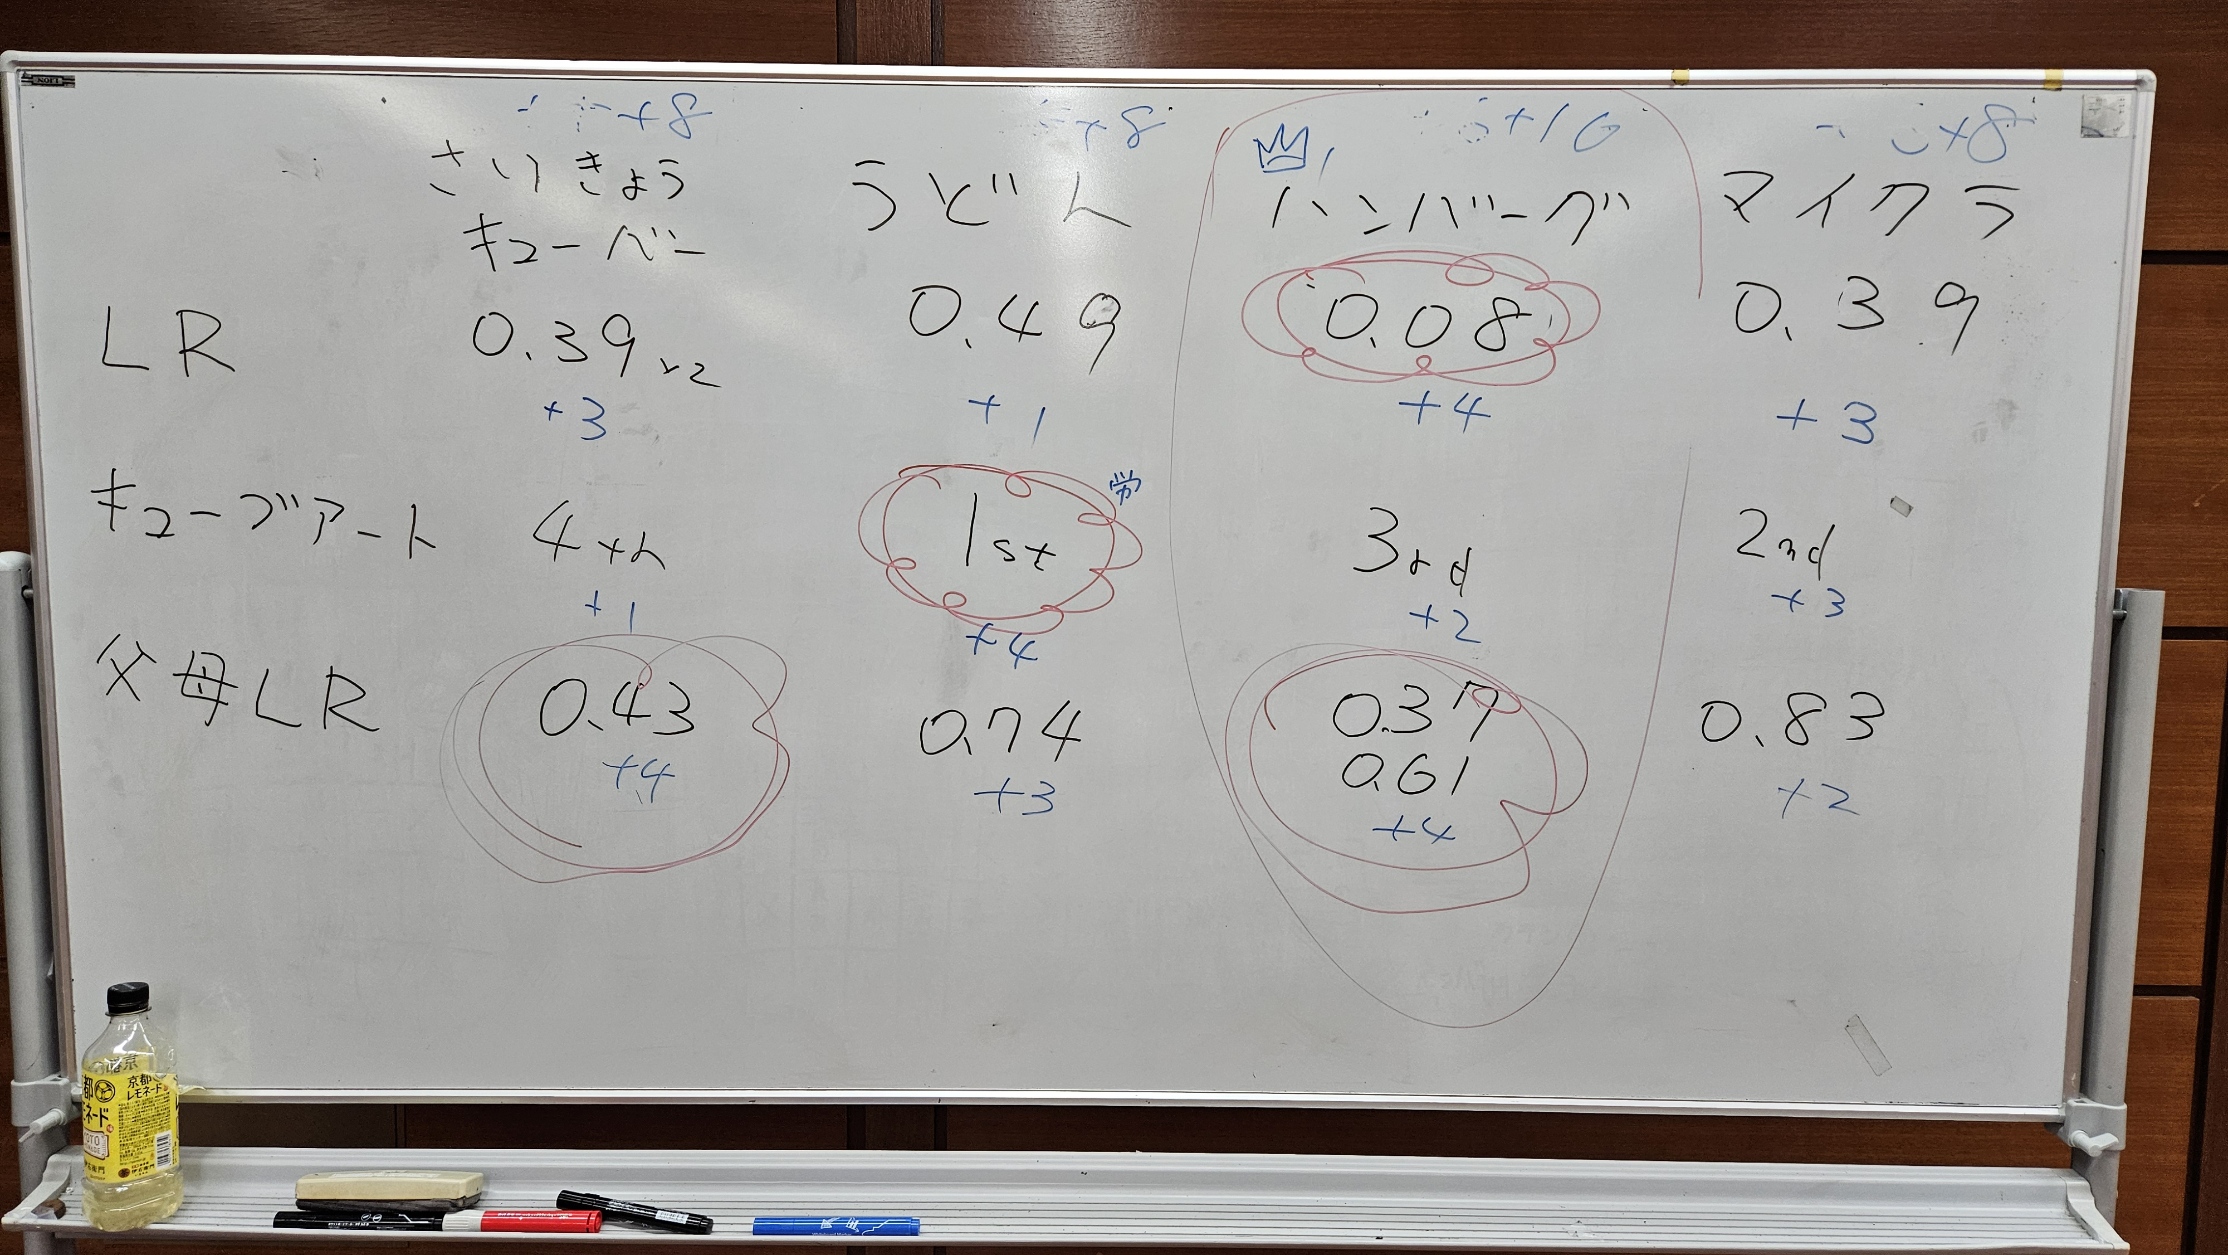 +8
+8
+10
+8
さいきょう
キューバー
うどん
ハンバーグ
マイクラ
LR
0.39 x2
0.49
0.08
0.39
+3
+1
+4
+3
キューブアート
4th
1st
労
3rd
2nd
+1
+4
+2
+3
父母LR
0.43
0.74
0.37
0.61
0.83
+4
+3
+4
+2
京都
レモネード